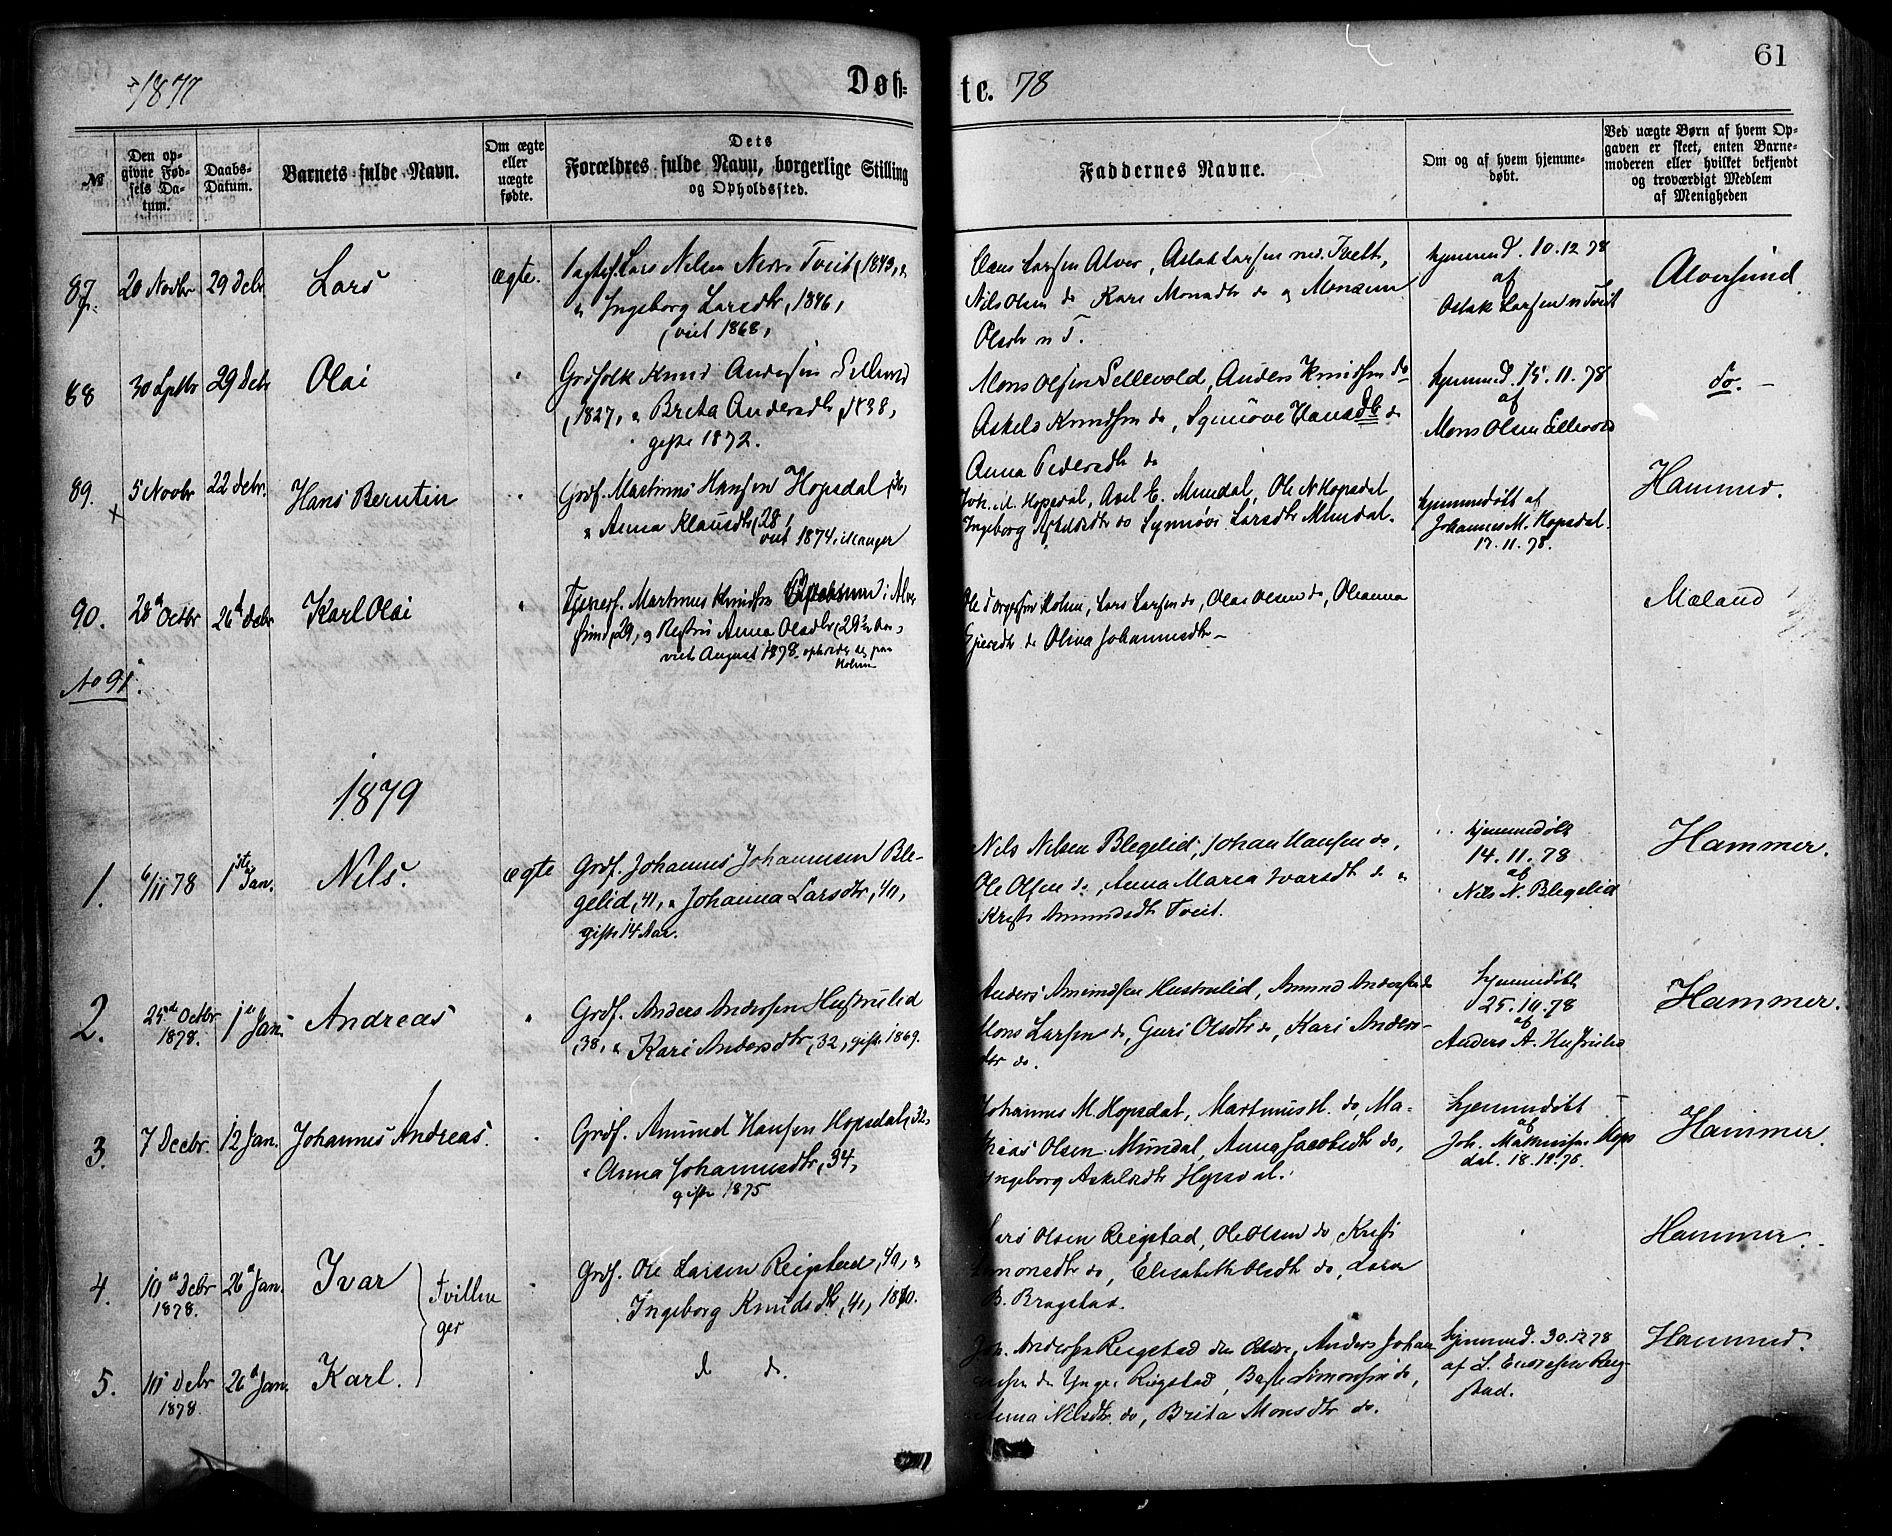 61
1877
Døb-
te. 78
№
Den op-
givne Fød-
sels Da-
tum.
Daabs-
Datum.
Barnets fulde Navn.
Om ægte
eller
uægte
fødte.
Dets
Forældres fulde Navn, borgerlige Stilling
og Opholdssted.
Faddernes Navne.
Om og af hvem hjemme-
døbt.
Ved uægte Børn af hvem Op-
gaven er skeet, enten Barne-
moderen eller hvilket bekjendt
og troværdigt Medlem
af Menigheden
87. 20 Novbr 29 Debr Lars ægte. Lars Nelsen Nedre Tveit, 1843, &
" Ingeborg Larsdtr, 1846,
viet 1868,
Claus Larsen Alver, Aslak Larsen ned. Tveit,
Nils Olsen do Kari Monsdtr do og
Olsdtr n T.
hjemmed. 10.12 78
af
Aslak Larsen n Tveit
Alversund
88 30 Septbr 29 Debr Olai " Grdfolk Knud Andersen Sellevold
, 1827, & Brita Andersdtr, 1838,
gifte 1872.
Mons Olsen Sellevold, Anders Knudsen do
Askels Knudsen do, Synnøve Hansdtr do
Anna Pedersdtr do
hjemmed. 15.11.78
af
Mons Olsen Sellevold
do. –
89. 5 Novbr 22 Debr. Hans Berntin " Grdf. Martinus Hansen Hopsdal, 36,
" Anna Klausdtr, 28,
viet 1874 i Manger
Joh. M. Hopsdal, Axel E. Mundal, Ole N Hopsdal
Ingeborg Askelsdtr do Synnøve Larsdtr Mundal.
hjemmedøbt af
Johannes M. Hopsdal.
17.11.78.
Hammer.
90. 28d Octbr 26d Debr Karl Olai " Tjenesf. Martinus Knudsen i Alver
sund, 29, og Anna Olsdtr, 29
viet August 1878. opholder sig paa
Holme
Ole Holme, Lars Larsen do, Olai Olsen do, Oleanna
do Olina Johannesdtr –
Mæland
No 91.
1879
1. 6/11 78 1ste Jan. Nils. ægte Grdf. Johannes Johannesen Ble-
gelid, 41, & Johanna Larsdtr, 40,
gifte 14 Aar.
Nils Nilsen Blegelid, Johan Hansen do,
Ole Olsen do, Anna Maria Ivarsdtr do &
Kristi Amundsdtr Tveit.
hjemmedøbt
14.11.78
af
Nils N. Blegelid
Hammer.
2. 25de Octbr
1878. 1ste Jan. Andreas " Grdf. Anders Andersen Hustrulid
, 38, & Kari Andersdtr, 32, gifte 1869.
Anders Amundsen Hustrulid, Amund Andersen do
Mons Larsen do, Guri Olsdtr do, Kari Anders-
dtr do.
hjemmedøbt
25.10.78
af
Anders A. Hustrulid
Hammer.
3. 7 Decbr. 12 Jan. Johannes Andreas. " Grdf. Amund Hansen Hopsdal, 32,
" Anna Johannesdtr, 34,
gifte 1875
Johannes M. Hopsdal, Martinus H. do, Ma-
thias Olsen Mundal, Anna Jacobsdtr do,
Ingeborg Askelsdtr Hopsdal.
hjemmedøbt
af
Joh. Mathiisen Hops
dal. 18.12.78.
Hammer.
4. 10de Debr
1878. 26d Jan. Ivar Tvillin
ger
Grdf. Ole Larsen Reigstad, 40, &
Ingeborg Knudsdtr, 41, 1870.
Lars Olsen Reigstad, Ole Olsen do, Kristi
Simonsdtr do, Elisabeth Olsdtr do, Lars
B. Bragstad.
Hammer.
5. 10 Debr
1878. 26d Jan. Karl. " d do.
Joh. Andersen Reigstad den Ældre, Anders Johan
nesen den Yngre Reigstad, Simonsen do,
Anna Nilsdtr do, Brita Monsdtr do.
hjemmed. 30.12 78
af L. Endresen Reig-
stad.
Hammer.